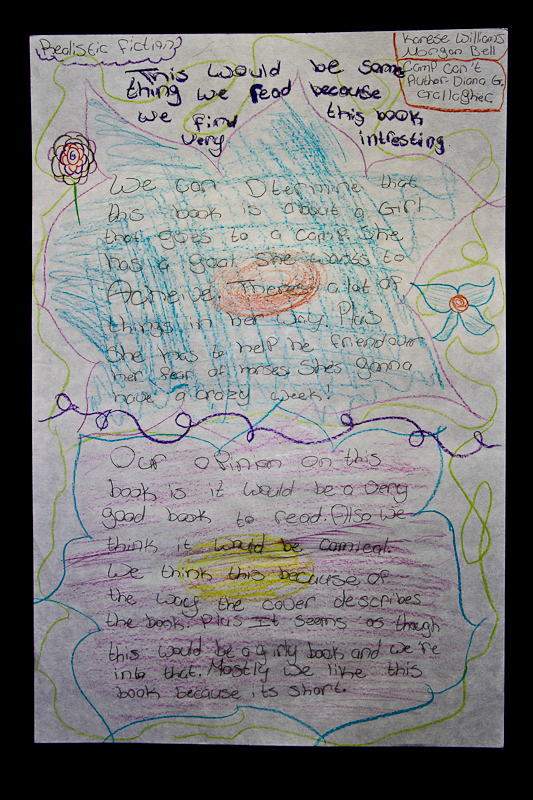 Realistic fiction
Karese Williams
Morgan Bell
Camp Can't
Author-Diana G.
Gallagher
This would be some
thing we read because
we find this book
very intresting.
6
We can Dtermine that
this book is about a Girl
that goes to a camp. She
has a goal she wants to
Acheive. Theres a lot of
things in her way. Plus
She has to help he friend over
her fear of horses. She's gonna
have a crazy week!
Our opinion on this
book is it would be a very
good book to read. Also we
think it would be comical.
We think this because of
the way the cover describes
the book. Plus It seems as though
this would be a girly book and we're
into that. Mostly we like this
book because its short.